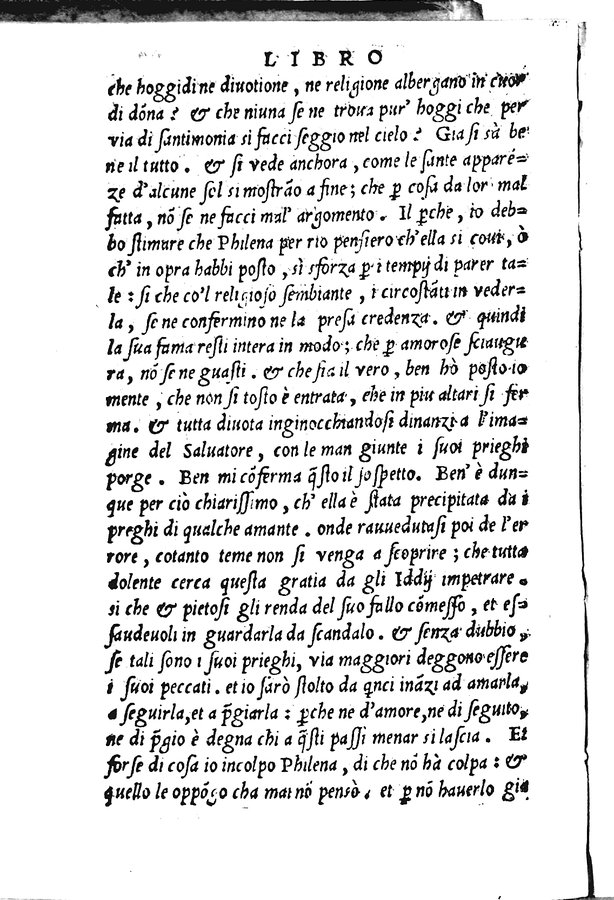 LIBRO
che hoggidi ne diuotione, ne religione albergano in cuor
di dóna? & che niuna se ne troua pur' hoggi che per
via di santimonia si facci seggio nel cielo? Gia si sà be
ne il tutto. & si vede anchora, come le sante apparé=
ze d'alcune sol si mostrāo a fine; che ꝑ cosa da lor mal
fatta, nō se ne facci mal' argomento. Il ꝑche, io deb=
bo stimare che Philena per rio pensiero ch'ella si coui, ò
ch' in opra habbi posto, sì sforza ꝑ i tempij di parer ta=
le: si che co'l religioso sembiante, i circostāti in veder=
la, se ne confermino ne la presa credenza. & quindi
la sua fama resti intera in modo; che ꝑ amorose sciaugu
ra, nō se ne guasti. & che sia il vero, ben hò posto io
mente, che non si tosto è entrata, che in piu altari si fer
ma. & tutta diuota inginocchiandosi dinanzi a l'ima=
gine del Saluatore, con le man giunte i suoi prieghi
porge. Ben mi cōferma q̄sto il sospetto. Ben' è dun=
que per ciò chiarissimo, ch' ella è stata precipitata da i
preghi di qualche amante. onde rauuedutasi poi de l'er
rore, cotanto teme non si venga a scoprire; che tutta
dolente cerca questa gratia da gli Iddij impetrare.
si che & pietosi gli renda del suo fallo cōmesso, et es=
saudeuoli in guardarla da scandalo. & senza dubbio,
se tali sono i suoi prieghi, via maggiori deggono essere
i suoi peccati. et io sarò stolto da q̄nci ināzi ad amarla,
a seguirla, et a p̄giarla: ꝑche ne d'amore, ne di seguito,
ne di p̄gio è degna chi a q̄sti passi menar si lascia. Et
forse di cosa io incolpo Philena, di che nō hà colpa: &
quello le oppōgo cha mai nō pensò. et ꝑ nō hauerlo gia